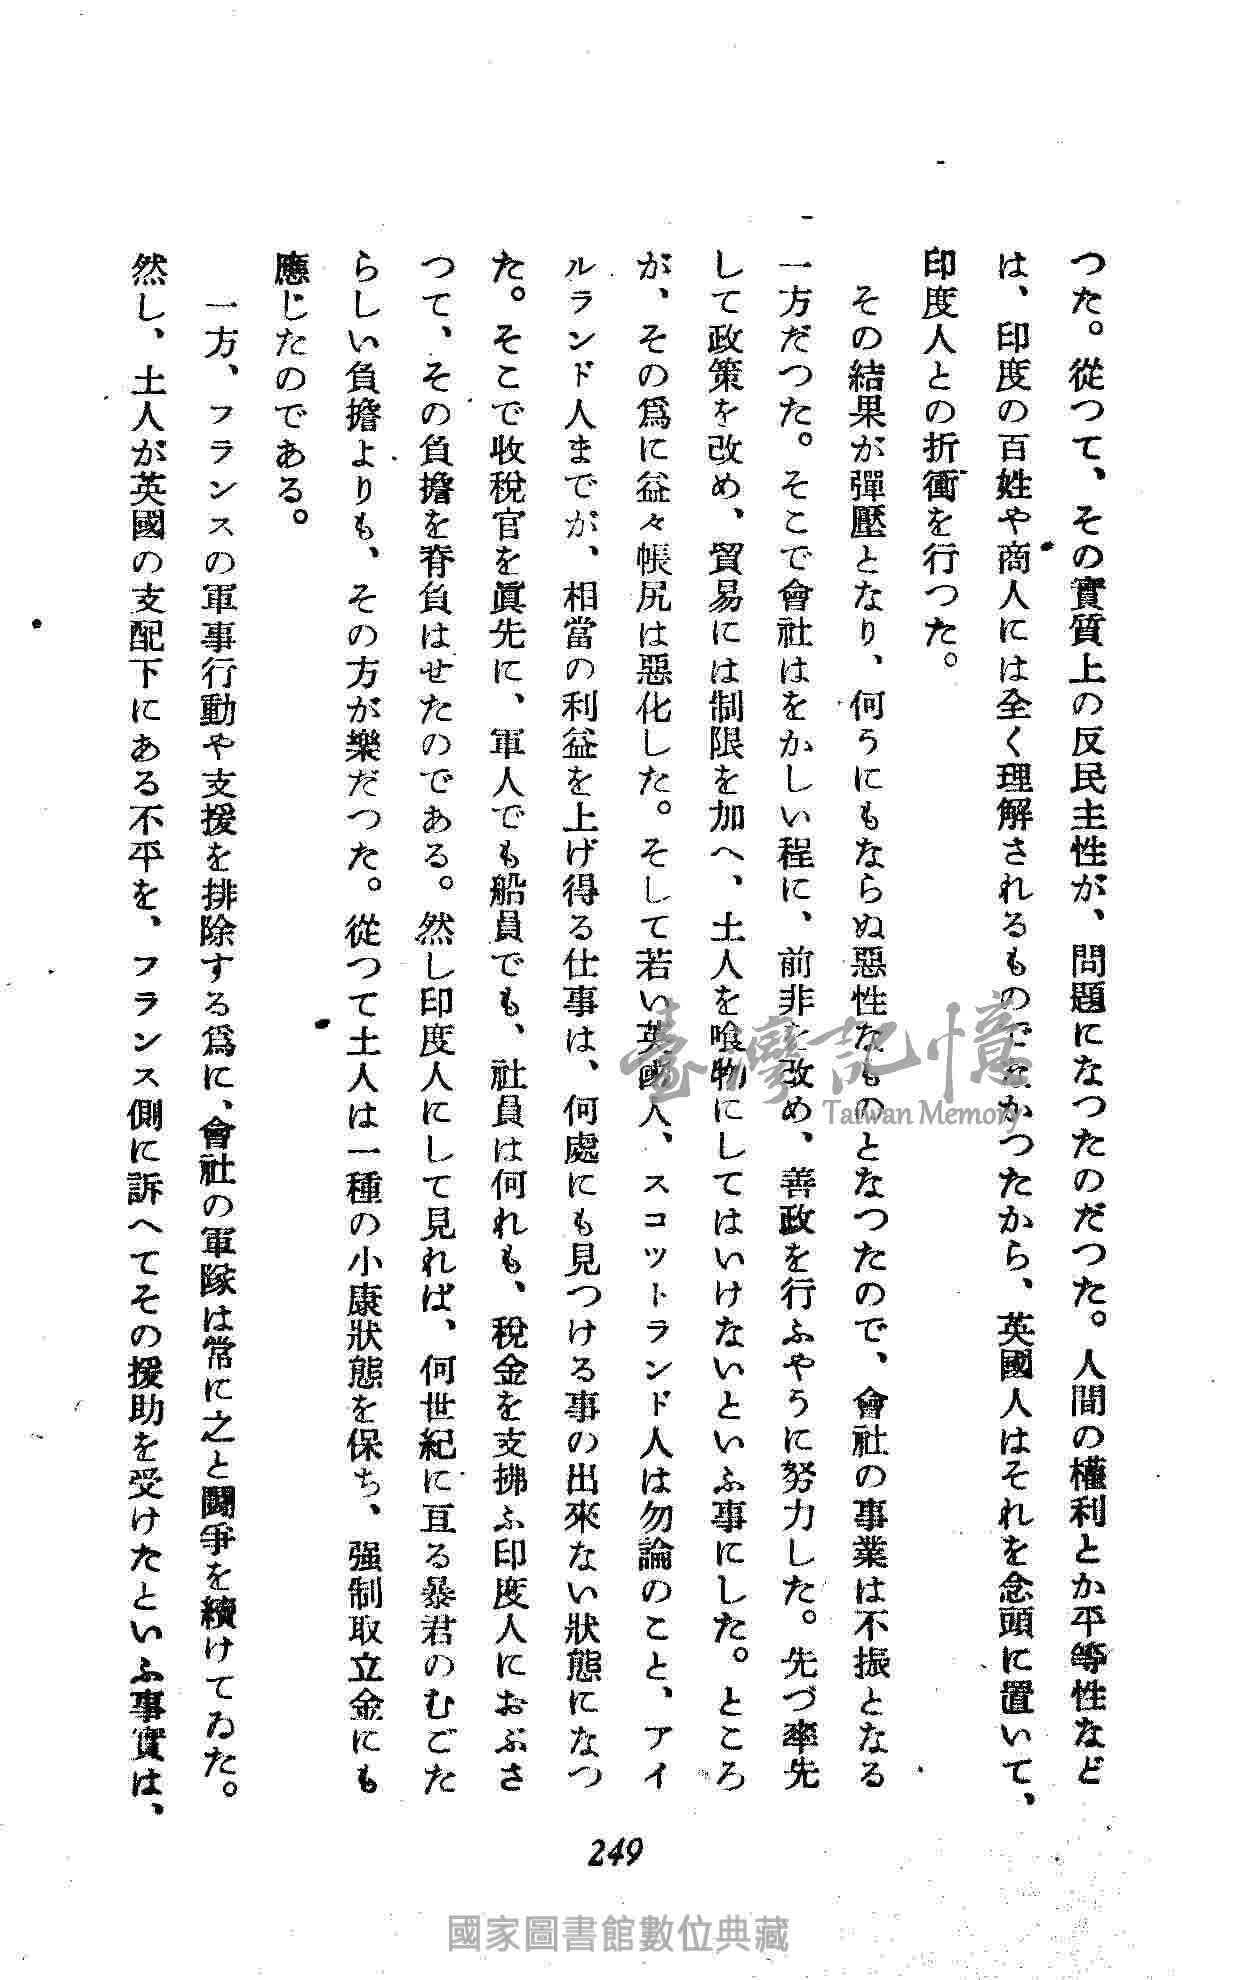 つた。從つて、その實質上の反民主性が、問題になつたのだつた。人間の權利とか平等性など
は、印度の百姓や商人には全く理解されるものでなかつたから、英國人はそれを念頭に置いて、
印度人との折衝を行つた。
その結果が彈壓となり、何うにもならぬ惡性なものとなつたので、會社の事業は不振となる
一方だつた。そこで會社はをかしい程に、前非を改め、善政を行ふやうに努力した。先づ率先
して政策を改め、貿易には制限を加へ、土人を喰物にしてはいけないといふ事にした。ところ
が、その爲に益々帳尻は惡化した。そして若い英國人、スコットランド人は勿論のこと、アイ
ルランド人までが、相當の利益を上げ得る仕事は、何處にも見つける事の出來ない狀態になつ
た。そこで收稅官を眞先に、軍人でも船員でも、社員は何れも、稅金を支拂ふ印度人におぶさ
つて、その負擔を脊負はせたのである。然し印度人にして見れば、何世紀に亙る暴君のむごた
らしい負擔よりも、その方が樂だつた。從つて土人は一種の小康狀態を保ち、强制取立金にも
應じたのである。
一方、フランスの軍事行動や支援を排除する爲に、會社の軍隊は常に之と鬪爭を續けてゐた。
然し、土人が英國の支配下にある不平を、フランス側に訴へてその援助を受けたといふ事實は、
249
臺灣記憶
Taiwan Memory
國家圖書館數位典藏